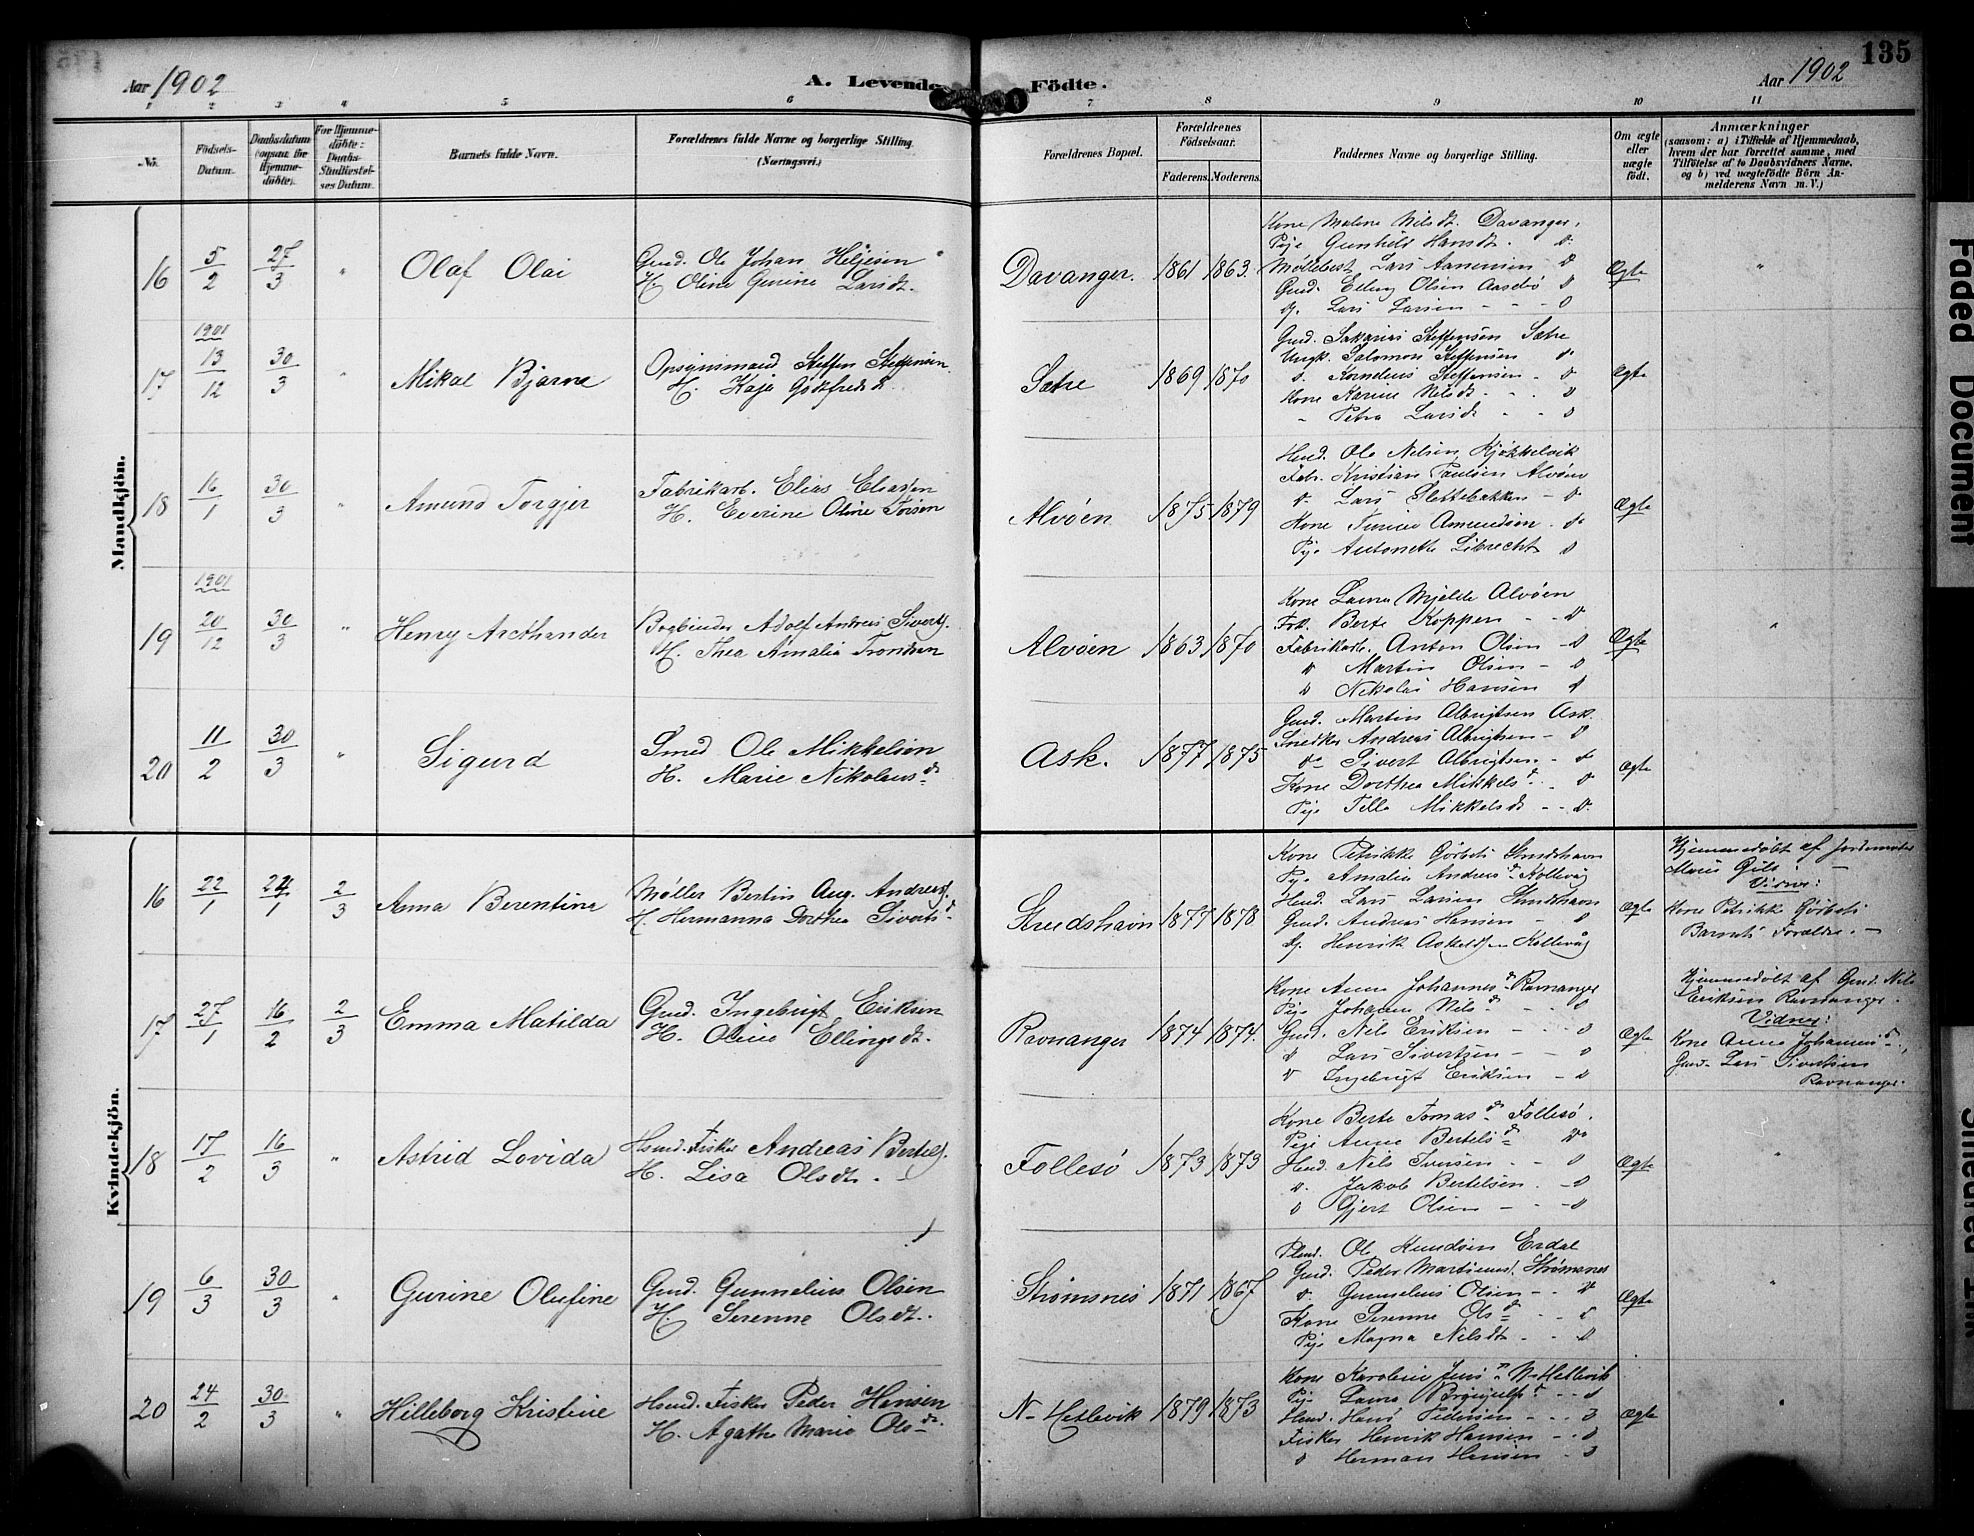 135
Aar 1902
A. Levende Födte.
Aar 1902
1 2 3 4 5 6 7 8 9 10 11
No.
Födsels-Datum.
Daabsdatum (ogsaa for Hjemmedöbte).
For Hjemmedöbte: Daabs-Stadfæstelses Datum.
Barnets fulde Navn.
Forældrenes fulde Navne og borgerlige Stilling. (Næringsvei.)
Forældrenes Bopæl.
Forældrenes Födselsaar.
Faderens. Moderens.
Faddernes Navne og borgerlige Stilling.
Om ægte eller uægte födt.
Anmærkninger
(saasom: a) i Tilfælde af Hjemmedaab, hvem der har forrettet samme, med Tilföielse af to Daabsvidners Navne, og b) ved uægtefödte Börn Anmelderens Navn m. V.)
Mandkjön.
16 5/2 27/3 " Olaf Olai
Gmd. Ole Johan Heljesen
H. Oline Gurine Larsdt.
Davanger. 1861 1863.
Kone Malene Nilsdt. Davanger,
Pige Gunhild Hansdt. do
Møllebest. Lars Aamensen do
Gmd. Elling Olsen Aasebø do
Lars Larsen - - do
Ægte "
17 1901 13/12 30/3 " Mikal Bjarne
Opsynsmand Steffen Steffensen
H. Kaja Gotfredsdt.
Sætre 1869 1870
Gmd. Sakarias Steffensen Sætre
Ungk. Salomon Steffensen do
d. Kornelius Steffensen - do
Kone Karine Nilsdt. - do
- Petra Larsdt. - - do
Ægte
18 16/1 30/3 " Amund Torgjer
Fabrikarb. Elias Eliasen
H. Everine Oline Torsen
Alvøen 1875 1879
Hmd. Ole Nilsen Kjøkkelvik
Fabr. Kristian Paulsen Alvøen
do Lars Slettebakken - do
Kone Amundsen - do
Pige Antonette Librecht do
Ægte
19 1901 20/12 30/3 " Henry Arcthander
Bogbinder Adolf Andreas Sivertsen
H. Thea Amalia Trondsen
Alvøen 1863 1870
Kone Laura Mjelde Alvøen
Frk. Berte Koppen - - do
Fabrikarb. Anton Olsen - do
do Martin Olsen - do
do Nikolai Hansen do
Ægte "
20 11/2 30/3 " Sigurd
Smed Ole Mikkelsen
H. Marie Nikolausdt.
Ask. 1877 1875
Gmd. Martin Albrigtsen Ask.
Snedker Andreas Albrigtsen - do
do Sivert Albrigtsen - do
Kone Dorthea Mikkelsdt. - do
Pige Tilla Mikkelsdt - - do
Ægte
Kvindekjön.
16 22/1 24/1 2/3 Anna Berentine
Møller Bertin Aug. Andreas.
H. Hermanna Dorthea Sivertsdt.
Strudshavn 1877 1878
Kone Petrikke Strudshavn
Pige Amalia Andreasdt. Kollevåg
Hmd. Lars Larsen Strudshavn
Gmd. Andreas Hansen - do
Henrik Askeldsen Kollevåg
Ægte
Hjemmedøbt af Jordemoder
Marie Gils -
Vidner:
Kone Petrikke
Barnets Forældre. -
17 27/1 16/2 2/3 Emma Matilda
Gmd. Ingebrigt Eriksen
H. Oline Ellingsdt.
Ravnanger 1874 1874.
Kone Anna Johannesdt. Ravnanger
Pige Johanna Nilsdt. - - do
Gmd. Nils Eriksen - - do
do Lars Sivertsen - - do
do Ingebrigt Eriksen - do
Ægte
Hjemmedøbt af Gmd. Nils
Eriksen Ravnanger.
Vidner:
Kone Anna Johannesdt.,
Gmd. Lars Sivertsen
Ravnanger.
18 17/2 16/3 " Astrid Lovida
Hmd. Fisker Andreas Bertels.
H. Lisa Olsdt. -
Follesø 1873 1873
Kone Berte Tomasdt. Follesø.
Pige Anna Bertelsdt. do
Hmd. Nils Iversen - - do
do Jakob Bertelsen. - do
do Gjert Olsen - - do
Ægte "
19 6/3 30/3 " Gurine Olufine
Gmd. Gunnelius Olsen
H. Serenne Olsdt.
Strømsnes 1871 1867
Plmd. Ole Knudsen Erdal
Gmd. Peder Martinus. Strømsnes
do Gunnelius Olsen - - do
Kone Serenne Olsdt. - - do
Pige Magna Nilsdt. - - do
Ægte "
20 24/2 30/3 " Hilleborg Kristine
Hmd. Fisker Peder Hansen
H. Agathe Marie Olsdt.
N-Hetlevik 1879 1873
Kone Karoline Jensdt. N-Hetlevik
Pige Laura Brynjulfsdt. - - do
Hmd. Hans Pedersen - - do
Fisker Henrik Hansen - - do
do Herman Hansen - do
Ægte "
Faded Document
Smeared Ink